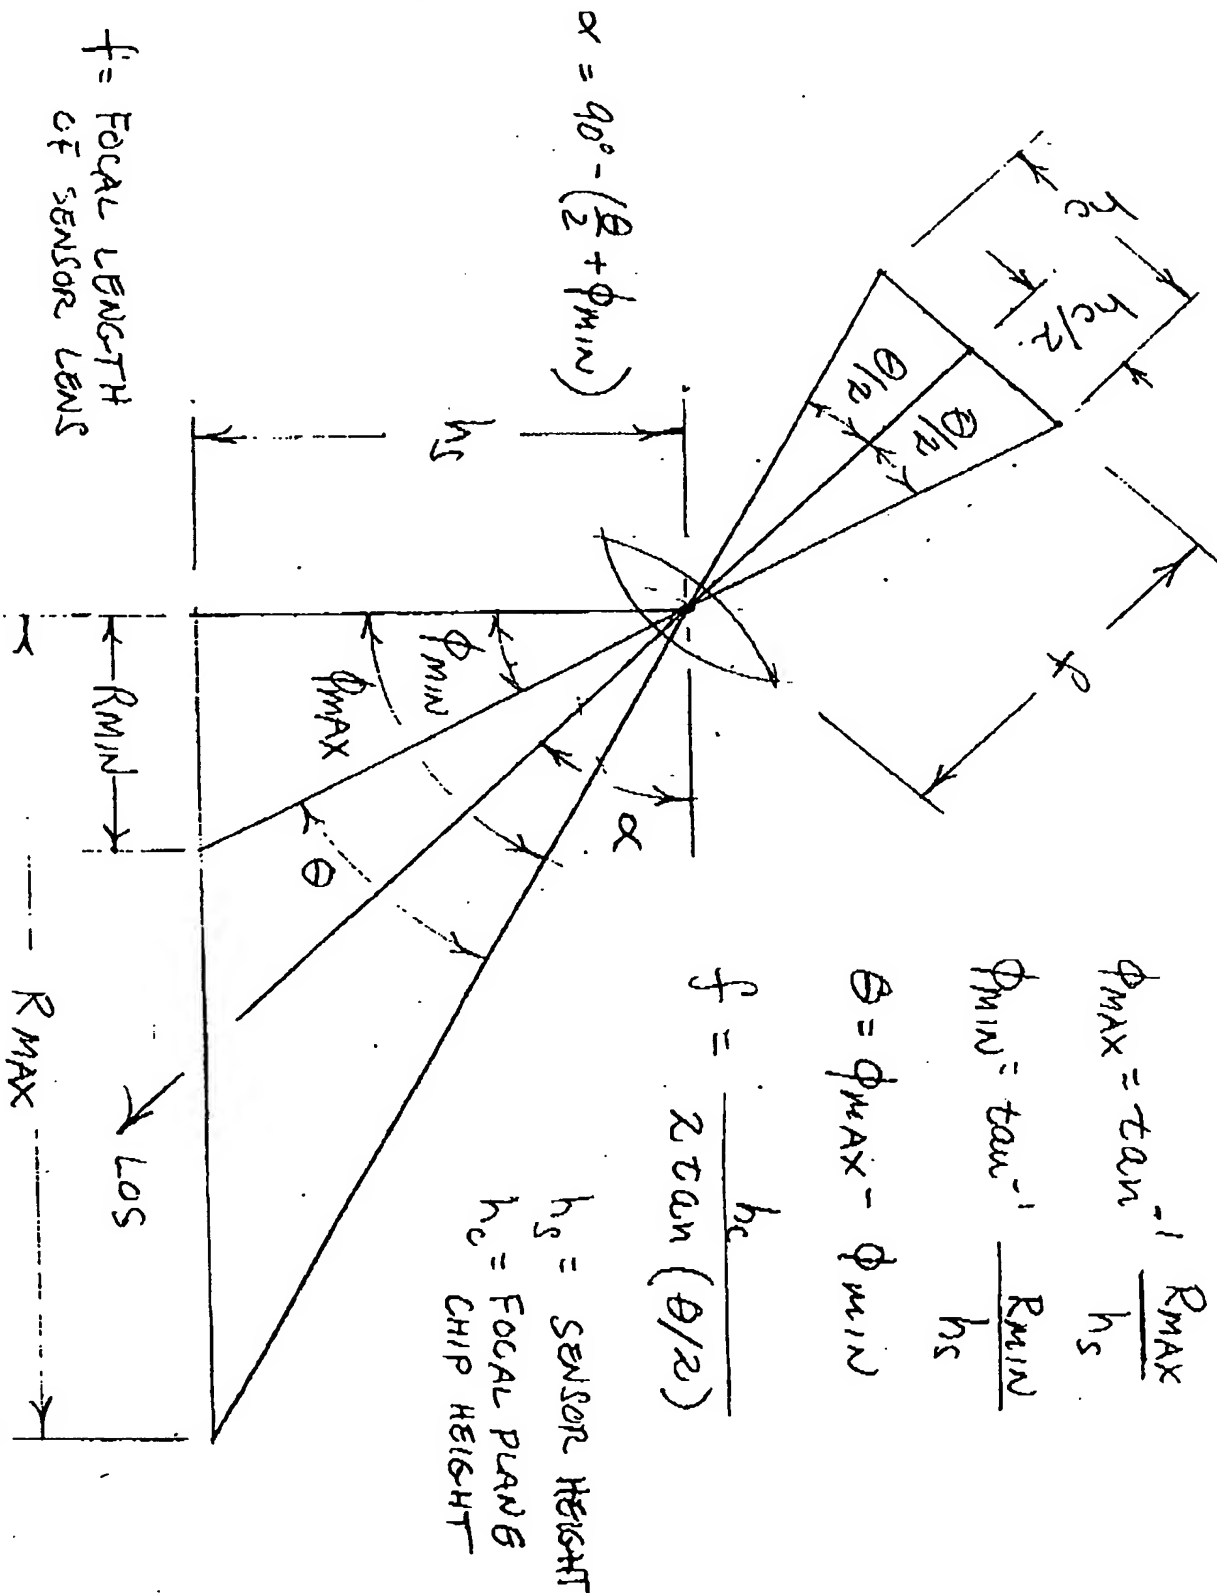 ϕMAX = tan⁻¹ RMAX / hs
ϕMIN = tan⁻¹ RMIN / hs
θ = ϕMAX - ϕMIN
f = hc / 2 tan (θ/2)
hs = SENSOR HEIGHT
hc = FOCAL PLANE
CHIP HEIGHT
hc
hc/2
θ/2
θ/2
f
α = 90° - (θ/2 + ϕMIN)
hs
ϕMIN
ϕMAX
α
θ
RMIN
LOS
RMAX
f = FOCAL LENGTH
OF SENSOR LENS